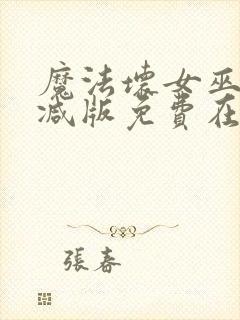 魔法壞女巫
减版免費在
張春